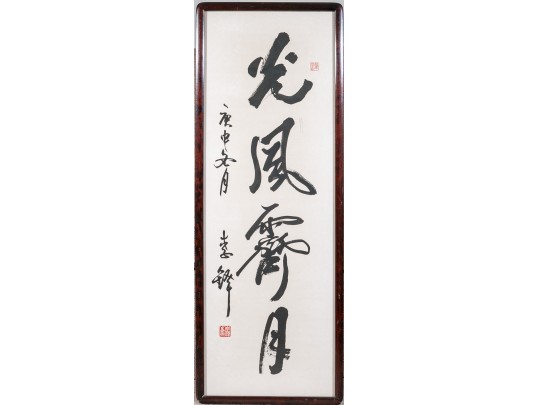 光風霽月
庚申冬月
李鋒